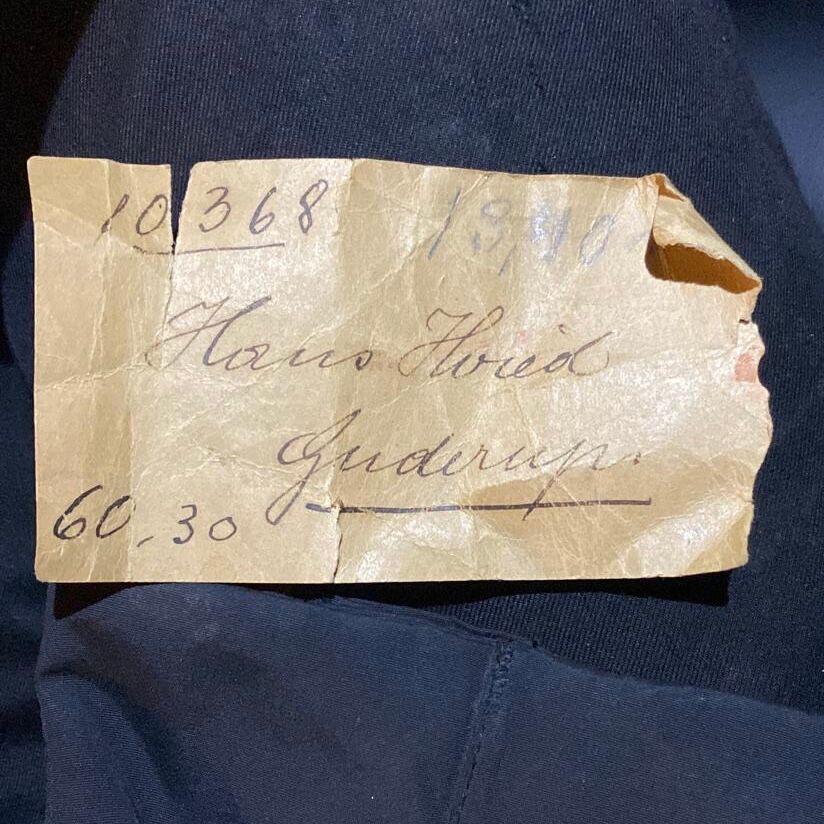 10368 13,40
Hans Hvied
Guderup.
60.30